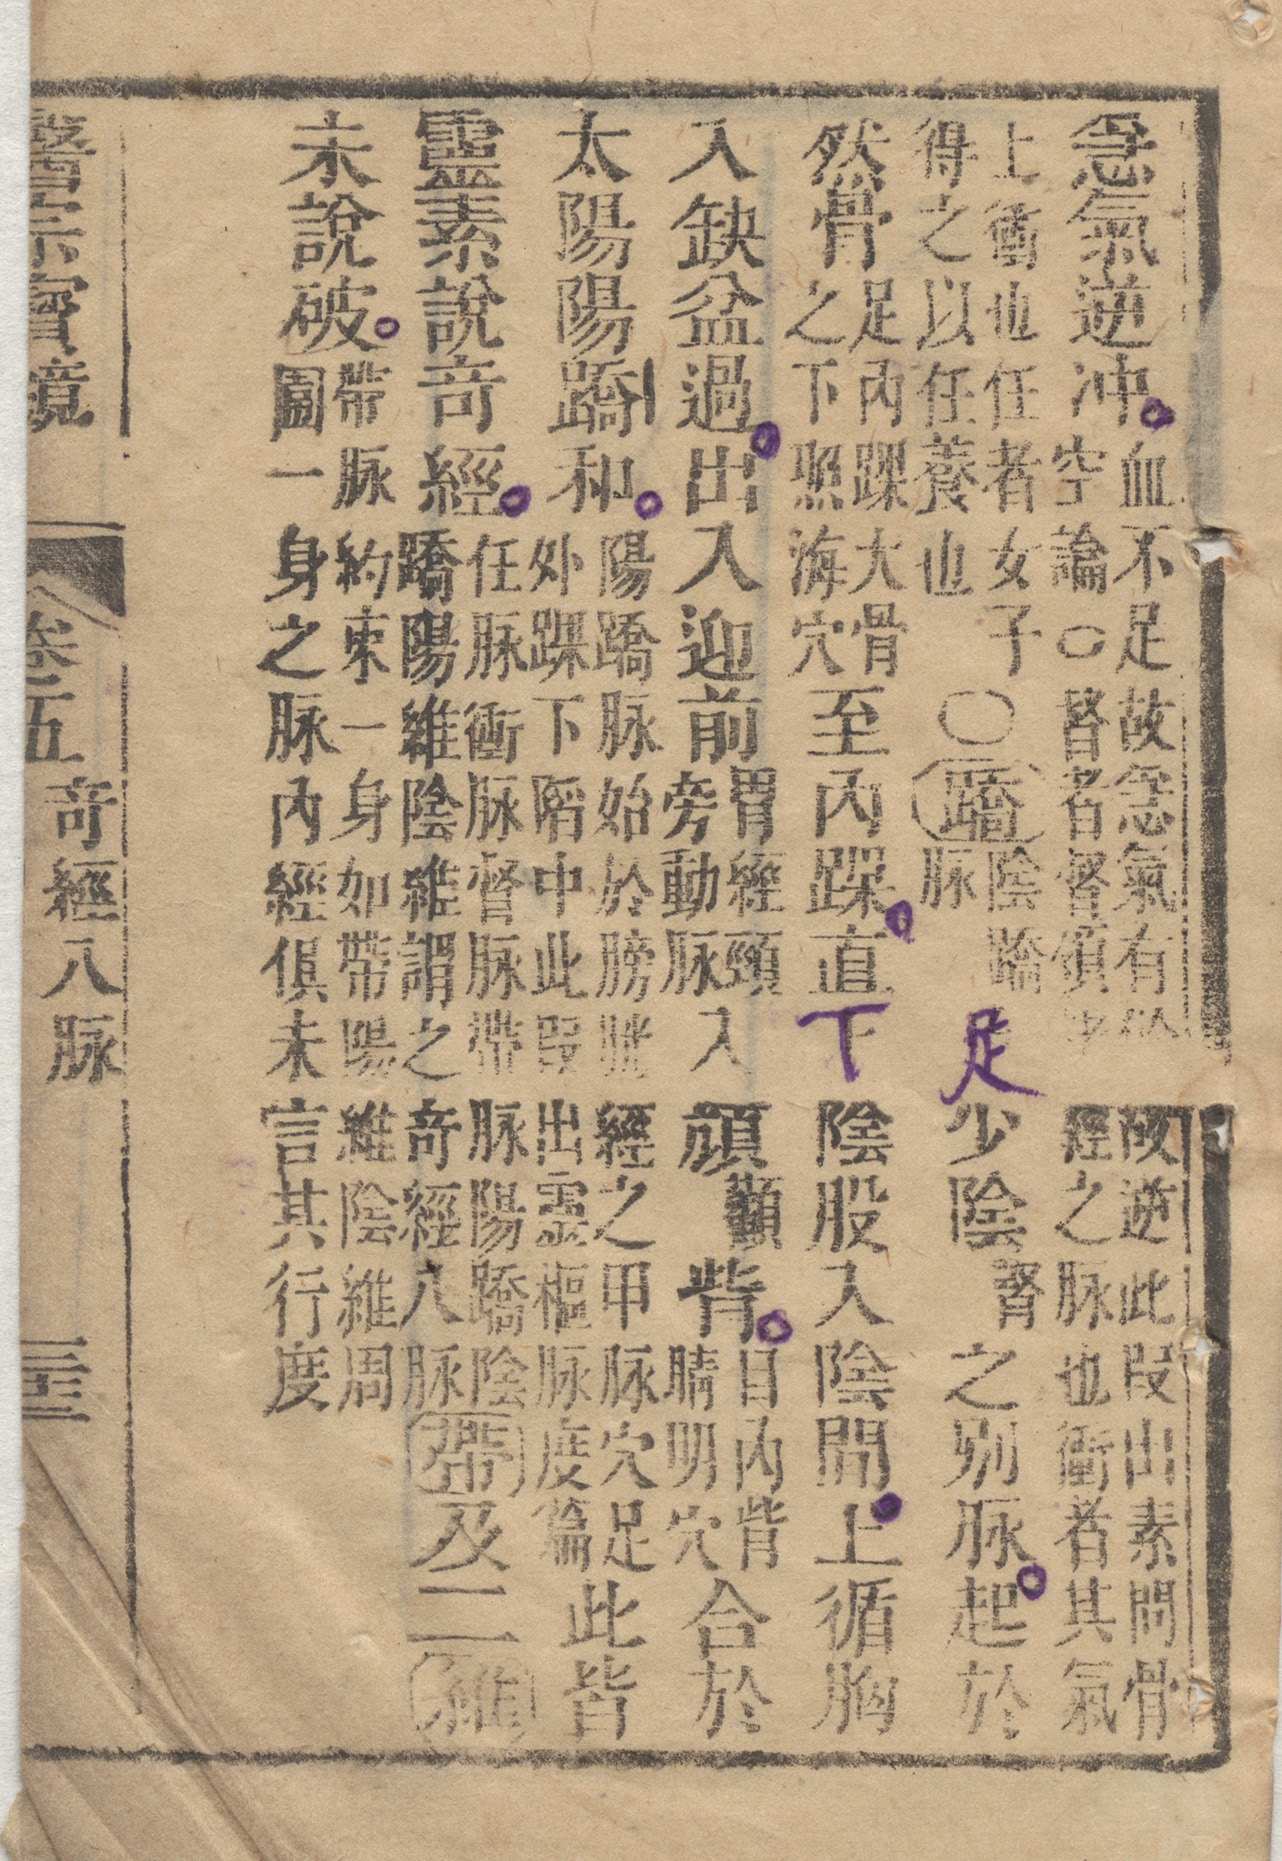 急氣逆冲血不足故急氣有故逆此段出素問骨
空論○督者督領經之脉也衝者其氣
上衝也任者女子
得之以任養也
○蹻陰蹻脉足少陰腎之別脉起於
然骨足內踝大骨
之下照海穴
至內踝直下陰股入陰間上循胸
入缺盆過出入迎前胃經頸
旁動脉
入頄顴眥目內眥
睛明穴
合於
太陽陽蹻和陽蹻脉始於膀胱經之甲脉穴足
外踝下陷中此段出靈樞脉度篇
此皆
靈素說奇經任脉衝脉督脉帶脉陽蹻陰
蹻陽維陰維謂之奇經八脉
帶及二維
未說破帶脉約束一身如帶陽維陰維周
圍一身之脉內經俱未言其行度
醫宗寶鏡 卷五 奇經八脉 三十三